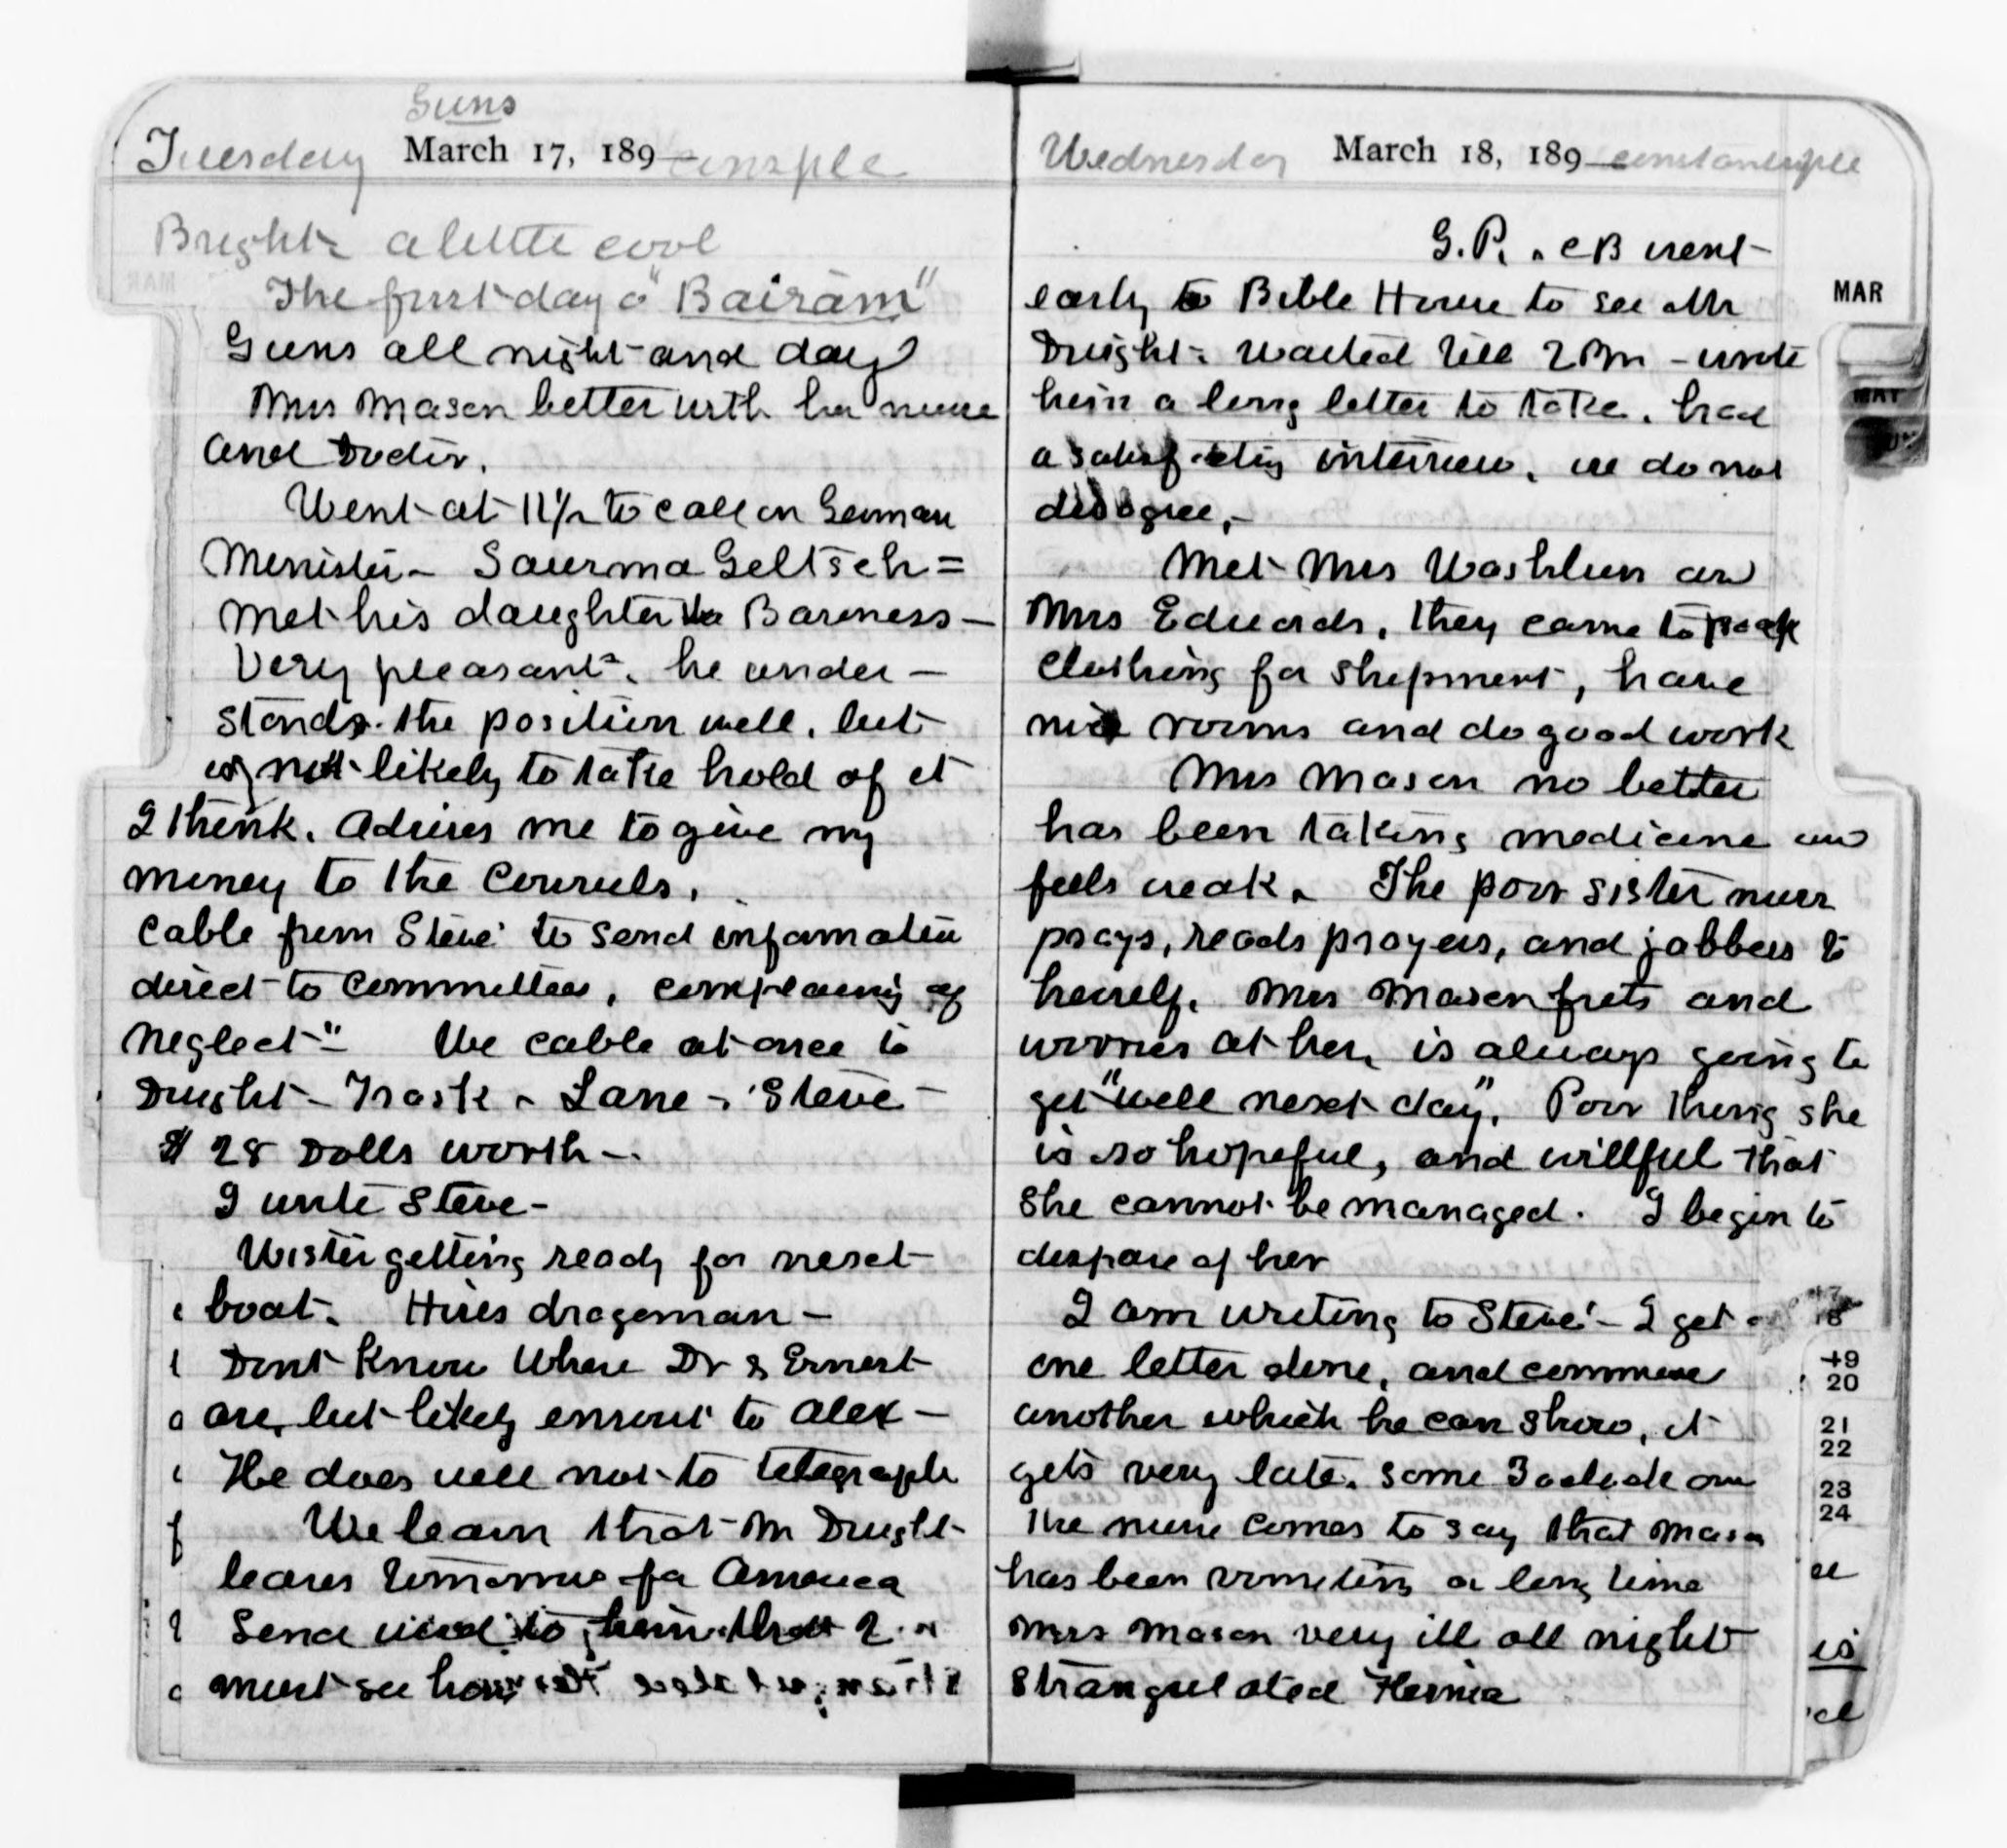 Guns
Tuesday March 17, 189 Consple
Bright a little cool
The first day o "Bairam"
Guns all night and day
Mrs Mason better with her nurse
and Doctor.
Went at 11½ to call on German
Minister - Saurma Geltsch =
met his daughter the Baroness -
Very pleasant. he under -
stands the position well, but
is not likely to take hold of it
I think. Advises me to give my
money to the Consuls.
Cable from Steve to send information
direct to Committees, complaining of
neglect" We cable at once to
Dwight - Trask - Lane - Steve -
$ 28 Dolls worth -
I write Steve -
Wister getting ready for next
boat. Hires dragoman -
Dont Know Where Dr & Ernest
are, but likely enrout to Alex -
He does well not to telegraph
We learn that Mr Dwight
leaves tomorrow for America
Send word to him that I
must see him
Wednesday March 18, 189 Constantinple
G.P. & CB went
early to Bible House to see Mr
Dwight. Waited till 2 PM - wrote
him a long letter to take. had
a satisfactory interview. we do not
disagree. -
Met Mrs Washburn and
Mrs Edwards, they came to pack
clothing for shipment, have
nice rooms and do good work
Mrs Mason no better
has been taking medicine and
feels weak. The poor sister nurse
prays, reads prayers, and jabbers to
herself. Mrs Mason frets and
worries at her, is always going to
get "well next day". Poor thing she
is so hopeful, and willful that
she cannot be managed. I begin to
despare of her
I am writing to Steve - I get
one letter done, and commence
another which he can show, it
gets very late. some 3 oclock am
the nurse comes to say that Mason
has been vomiting a long time
Mrs Mason very ill all night
Strangulated Hernia
MAR
MAY
18
19
20
21
22
23
24
is